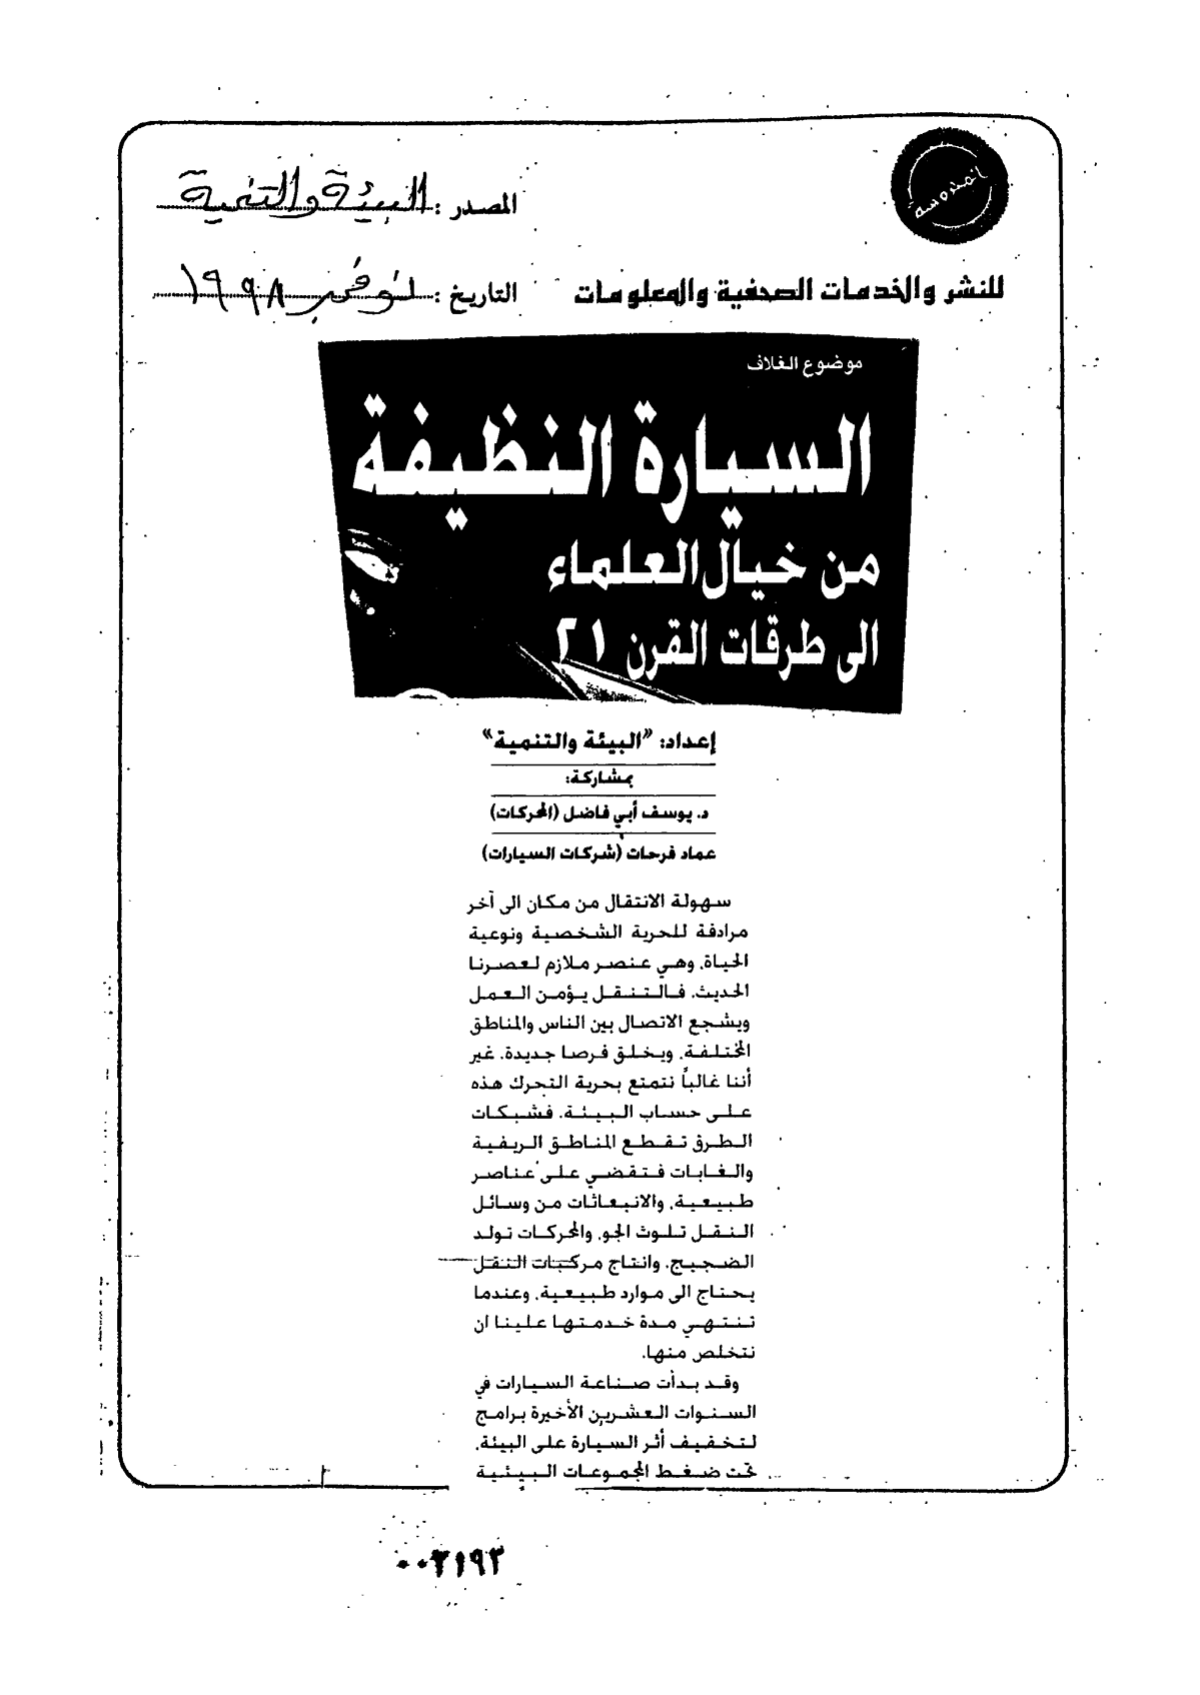 المحروسة
المصدر : البيئة والتنمية
للنشر والخدمات الصحفية والمعلومات
التاريخ : نوفمبر ١٩٩٨
موضوع الغلاف
السيارة النظيفة
من خيال العلماء
الى طرقات القرن ٢١
إعداد: «البيئة والتنمية»
بمشاركة:
د. يوسف أبي فاضل (المحركات)
عماد فرحات (شركات السيارات)
سهولة الانتقال من مكان الى آخر
مرادفة للحرية الشخصية ونوعية
الحياة، وهي عنصر ملازم لعصرنا
الحديث. فالتنقل يؤمن العمل
ويشجع الاتصال بين الناس والمناطق
المختلفة، ويخلق فرصا جديدة. غير
أننا غالباً نتمتع بحرية التحرك هذه
على حساب البيئة. فشبكات
الطرق تقطع المناطق الريفية
والغابات فتقضي على عناصر
طبيعية، والانبعاثات من وسائل
النقل تلوث الجو، والمحركات تولد
الضجيج، وانتاج مركبات النقل
يحتاج الى موارد طبيعية، وعندما
تنتهي مدة خدمتها علينا ان
نتخلص منها.
وقد بدأت صناعة السيارات في
السنوات العشرين الأخيرة برامج
لتخفيف أثر السيارة على البيئة،
تحت ضغط المجموعات البيئية